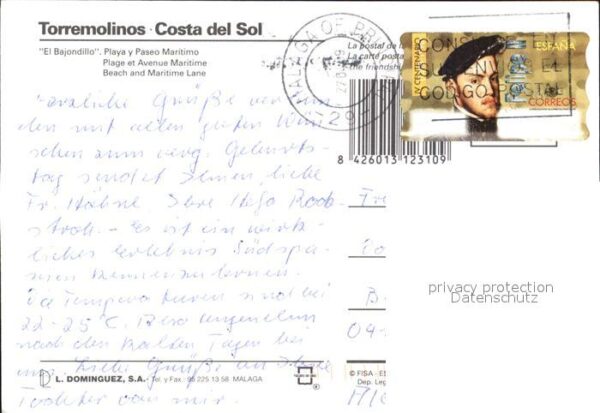 Torremolinos · Costa del Sol
"El Bajondillo". Playa y Paseo Marítimo
Plage et Avenue Maritime
Beach and Maritime Lane
La postal de la
La carte posta
The friendshi
MALAGA OF PR
27-0
29
CONS
CODIGO POSTAL
IV CENTENARIO
Felipe II
ESPAÑA
CORREOS
8 426013 123109
Herzliche Grüße ver
den mit allen guten Wün
schen zum verg. Geburts-
tag sendet Ihnen, liebe
Fr. Hähne Ihre Helga
Es ist ein wirk-
liches Erlebnis Südspa-
nien kennenzulernen.
Die Temperaturen sind bei
22-25°C. angenehm
nach den kalten Tagen bei
uns. Liebe Grüße an Ihre
Tochter von mir.
Fr
B
09
privacy protection
Datenschutz
D L. DOMINGUEZ, S.A. · Tel. y Fax. 95 225 13 58 MALAGA
© FISA - ES
Dep. Leg